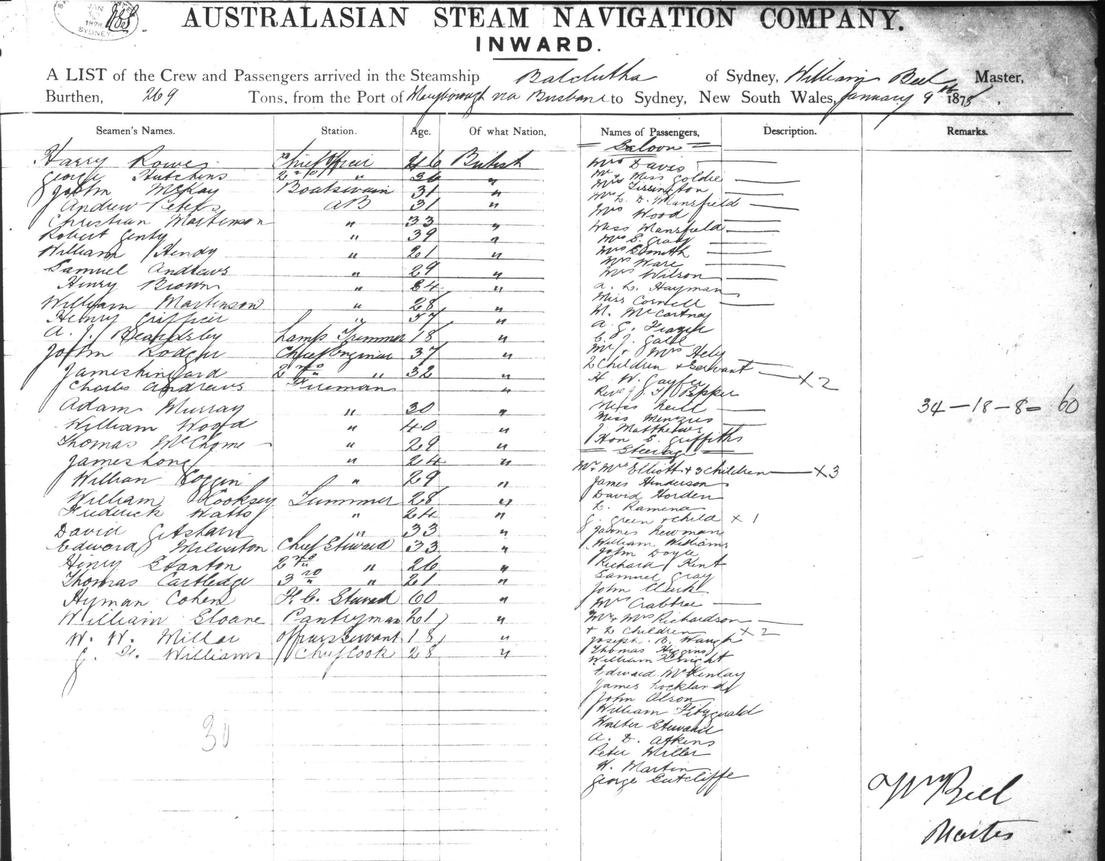 AUSTRALASIAN STEAM NAVIGATION COMPANY.
INWARD.
A LIST of the Crew and Passengers arrived in the Steamship Balclutha of Sydney, William Beel Master,
Burthen, 269 Tons, from the Port of Maryborough via Brisbane to Sydney, New South Wales, January 9th 1875
Seamen's Names. Station. Age. Of what Nation, Names of Passengers, Description. Remarks.
Harry Rowe Chief Officer 46 British
George Hutchins 2nd " 36 "
John McKay Boatswain 31 "
Andrew Peters AB 31 "
Christian Martinson " 33 "
Robert Genty " 39 "
William Hendy " 21 "
Samuel Andrews " 29 "
Henry Brown " 24 "
William Martinson " 28 "
Henry " 37 "
A. J. Beardsley Lamp Trimmer 18 "
John Rodger Chief Engineer 37 "
James 2nd " 32 "
Charles Andrews Fireman "
Adam Murray " 30 "
William Woofd " 40 "
Thomas " 29 "
James Long " 24 "
William Loggin " 29 "
William Cooksey Trimmer 28 "
Frederick Watts " 24 "
David " 33 "
Edward Milverton Chief Steward 33 "
Henry Stanton 2nd " 26 "
Thomas Cartledge 3rd " 21 "
Hyman Cohen F. C. Steward 60 "
William Sloane Pantryman 21 "
W. W. Miller Officers Servant 18 "
G. Williams Chief Cook 28 "
30
Saloon
Mrs Davis
Mr Miss Goldie
Mrs
Mr L. D. Mansfield
Mrs Wood
Miss Mansfield
Mrs E. Gray
Mrs Smith
Mrs Ware
Mrs Wilson
A. L. Hayman
Miss Cornell
M. McCartney
A. G. Frazer
E. J. Gall
Mr & Mrs Hely
2 Children & Servant X2
H. W. Gayfer
Rev J. J. Pepper
Miss Neill
Miss Menzies
J. Matthews
Hon E. Griffiths
Steerage
Mr Mrs Elliott & 3 Children X3
James Henderson
David Horden
L. Ramena
J. Green & child X 1
James Newman
William Williams
John Doyle
Richard Kent
Samuel Gray
John Clark
Mrs Crabtree
Mr & Mrs Richardson
& 2 Children X 2
Joseph B. Waugh
Thomas Higgins
William Knight
Edward McKinlay
James Lockland
John Olson
William Fitzgerald
Walter Steward
A. D. Atkins
Peter Miller
H. Martin
George Sutcliffe
34 - 18 - 8 = 60
Wm Beel
Master